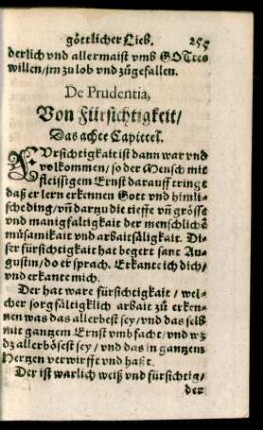 göttlicher Lieb. 255
derlich vnd allermaist vmb GOTtes
willen/jm zu lob vnd zůgefallen.
De Prudentia,
Von Fürsichtigkeit/
Das achte Capittel.
FVrsichtigkait ist dann war vnd
volkommen/so der Mensch mit
fleissigem Ernst darauff tringt
daß er lern erkennen Gott vnd himli-
sche ding/vñ dargu die tieffe vñ grösse
vnd manigfaltigkait der menschlichē
můsamikait vnd arbaitsäligkait. Di-
ser fürsichtigkait hat begert sant Au-
gustin/do er sprach. Erkante ich dich/
vnd erkante mich.
Der hat ware fürsichtigkait/wel-
cher sorgfältigklich arbait zů erken-
nen was das allerbest sey/vnd das selb
mit gantzem Ernst vmbfacht/vnd wz
dz allerbösest sey/vnd das in gantzem
Hertzen verwirfft vnd haßt.
Der ist warlich weiß vnd fürsichtig/
der